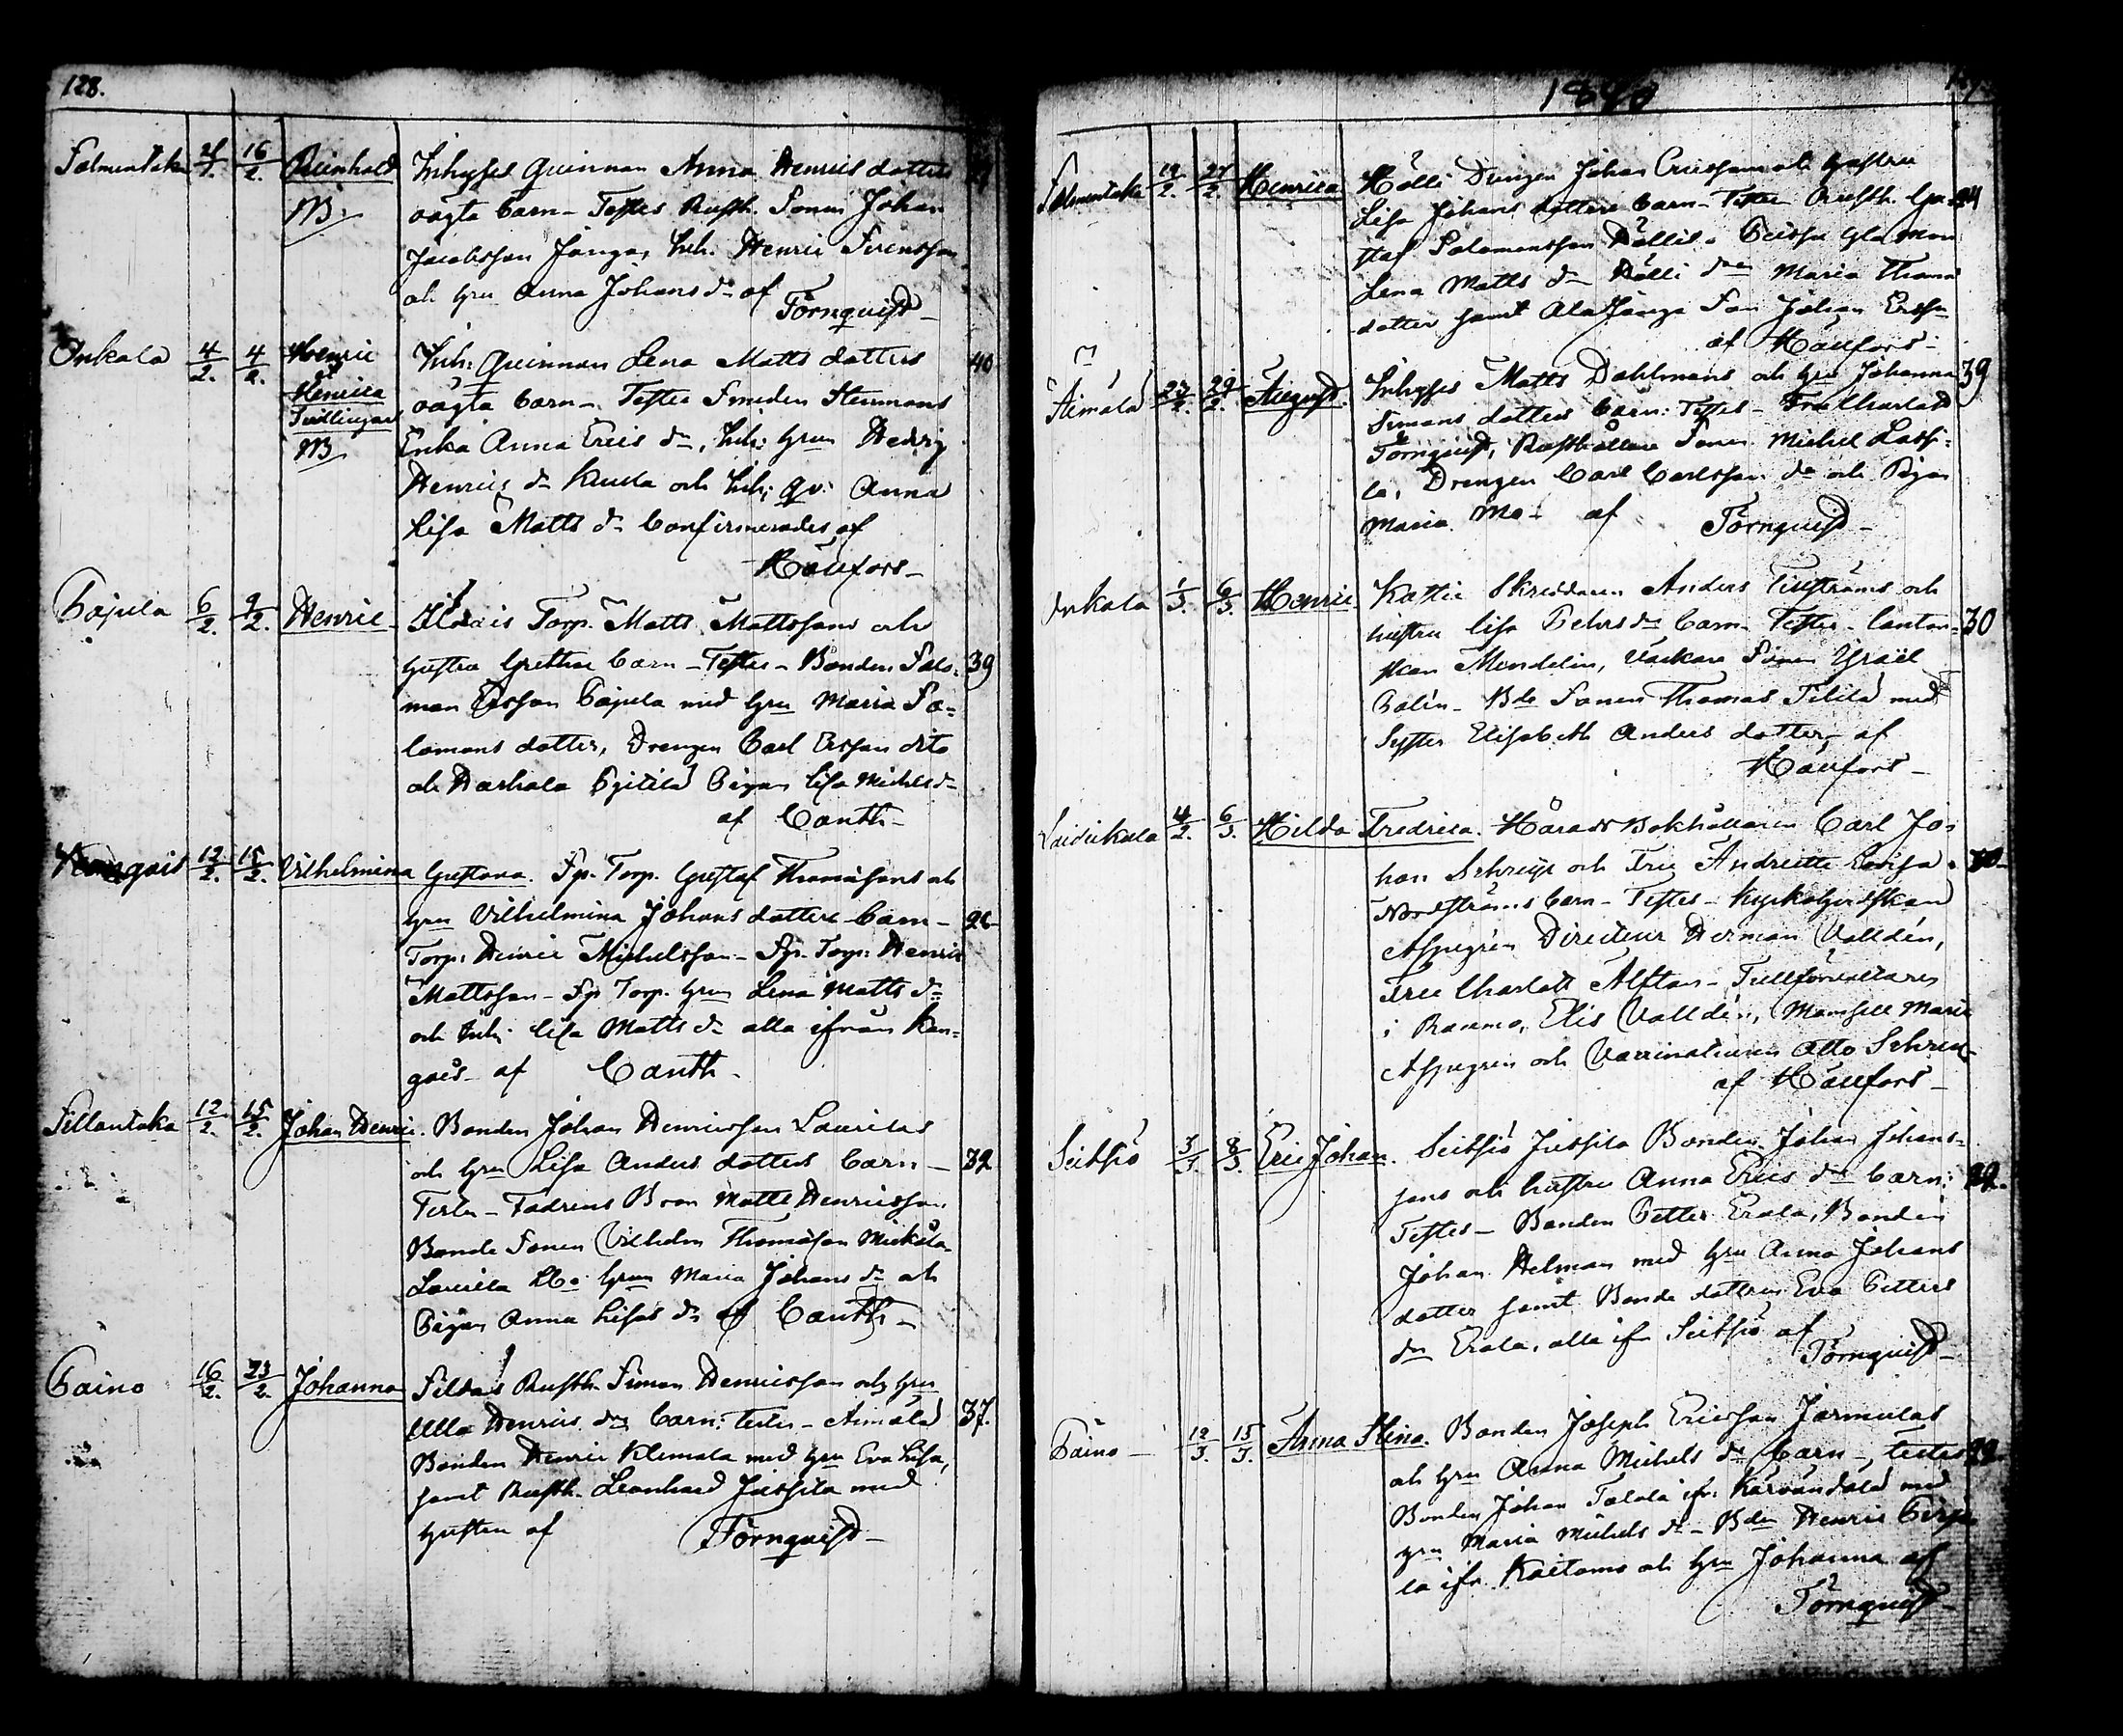 128.
Salmentaka 21/1. 16/2. Reinhold Inhyses Quinnan Anna Henrics dotters
M. oägta barn – Testes Rusth. Sonen Johan
Jacobsson Jänga, Inh. Henric
och hru Anna Johans dr af
Törnqvist –
Onkala 4/2. 4/2. Henric Inh. Quinnan Lena Matts dotters 40
Henrica oägta barn – Testes Smeden Stenmans
Tvillingar Enka Anna Erics dr, Inh: hrun Hedvig
M Henrics dr och Inh; qv: Anna
Lisa Matts dr Confirmerades af
Häufors –
Pajula 6/2. 9/2. Henric Torp. Matts Mattssons och
hustru Grethas barn – Testes – Bonden Salo- 39
man Ersson Pajula med hru Maria Sa-
lomons dotter, Drengen Carl Ersson dito
och Pigan Lisa Michels dr
af Canth –
12/2. 15/2. Vilhelmina Gustava. Sp. Torp. Gustaf Thomassons och
hru Vilhelmina Johans dotters barn – 26
Torp: Henric Michelsson – Sp. Torp: Henric
Mattsson – Sp Torp. hrun Lena Matts dr
och Inh. Lisa Matts dr alla ifrån Kan-
gais – af Canth –
Sillantaka 12/2. 15/2. Johan Henric. Bonden Johan Henricsson Laurilas
och hru Lisa Anders dotters barn – 32
Testes – Fadrens Bror Matts Henricsson
Bonde Sonen Vilhelm Thomasson
Laurila hrun Maria Johans dr och
Pigan Anna Lisas dr af Canth –
Paino 16/2. 23/2. Johanna Rusth. Simon Henricsson och hru
Ulla Henrics drs barn: testes – Aimälä 37.
Bonden Henric Klemola med hru Eva Lisa,
samt Rusth. Leonhard Jussila med
hustru af Törnqvist –
1840
Salmentaka 19/2. 27/2. Henrica Hölli Drengen Johan Ericssons och hustru
Lisa Johans dotters barn – Testes Rusth. Gu-
staf Salomonsson Hölli
Lena Matts dr Hölli dr Maria Thomas
dotter samt Ala Jänga Son Johan Ersson
af Häufors –
Aimälä 27/2. 29/2. August Inhyses Matts Dahlmans och hru Johanna 39
Simons dotters barn: Testes – Fru Charlotta
Törnqvist, Rusthållare Sonen Michel Lassi-
la, Drengen Carl Carlsson dr och Pigan
Maria af Törnqvist –
Onkala 1/3. 6/3. Henric Skreddaren Anders och
hustru Lisa Pehrs dr barn – Testes – Cantor- 30
skan Mendelin, Väckare Sonen Israël
Palin – Bde Sonen Thomas med
Syster Elisabeth Anders dotter, af
Häufors –
Laidikala 4/2. 6/3. Hilda Fredrica. Härads Bokhållaren Carl Jo-
han och Fru Andriette Lovisa 30
Nordströms barn – Testes – Kyrkoherdskan
Aspegrén Directeur Herman Valldén,
Fru Charlott Alftan – Tullförvaltaren
i Raumo, Elis Valldén, Mamsell Maria
Aspegrén och Vaccinateuren Otto
af Häufors –
Seitsjö 3/3. 8/3. Eric Johan. Seitsjö Jussila Bonden Johan Johans-
sons och hustru Anna Erics drs barn: 29.
Testes – Bonden Petter Erola, Bonden
Johan Helman med hru Anna Johans
dotter samt Bonde dottren Eva Petters
dr Erola, alla ifr Seitsjö af
Törnqvist –
Paino – 12/3. 15/3. Anna Stina. Bonden Joseph Ericsson Jarmulas
och hru Anna Michels drs barn –, testes
Bonden Johan Talola ifr. med
hru Maria Michels dr – Bden Henric
la ifr. Kaitamo och hru Johanna af
Törnqvist –